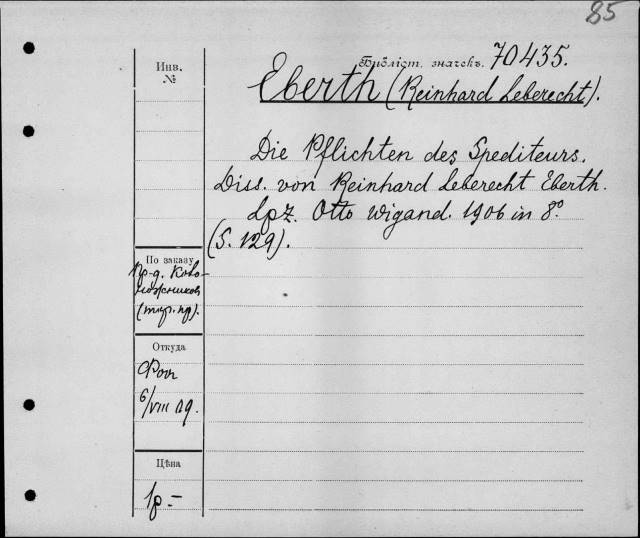 85
Библіот. значекъ. 70435.
Инв.
№
Eberth (Reinhard Leberecht).
Die Pflichten des Spediteurs.
Diss. von Reinhard Leberecht Eberth.
Lpz. Otto Wigand. 1906 in 8º
(S. 129).
По заказу
Откуда
6/VIII 09.
Цѣна
1р.-